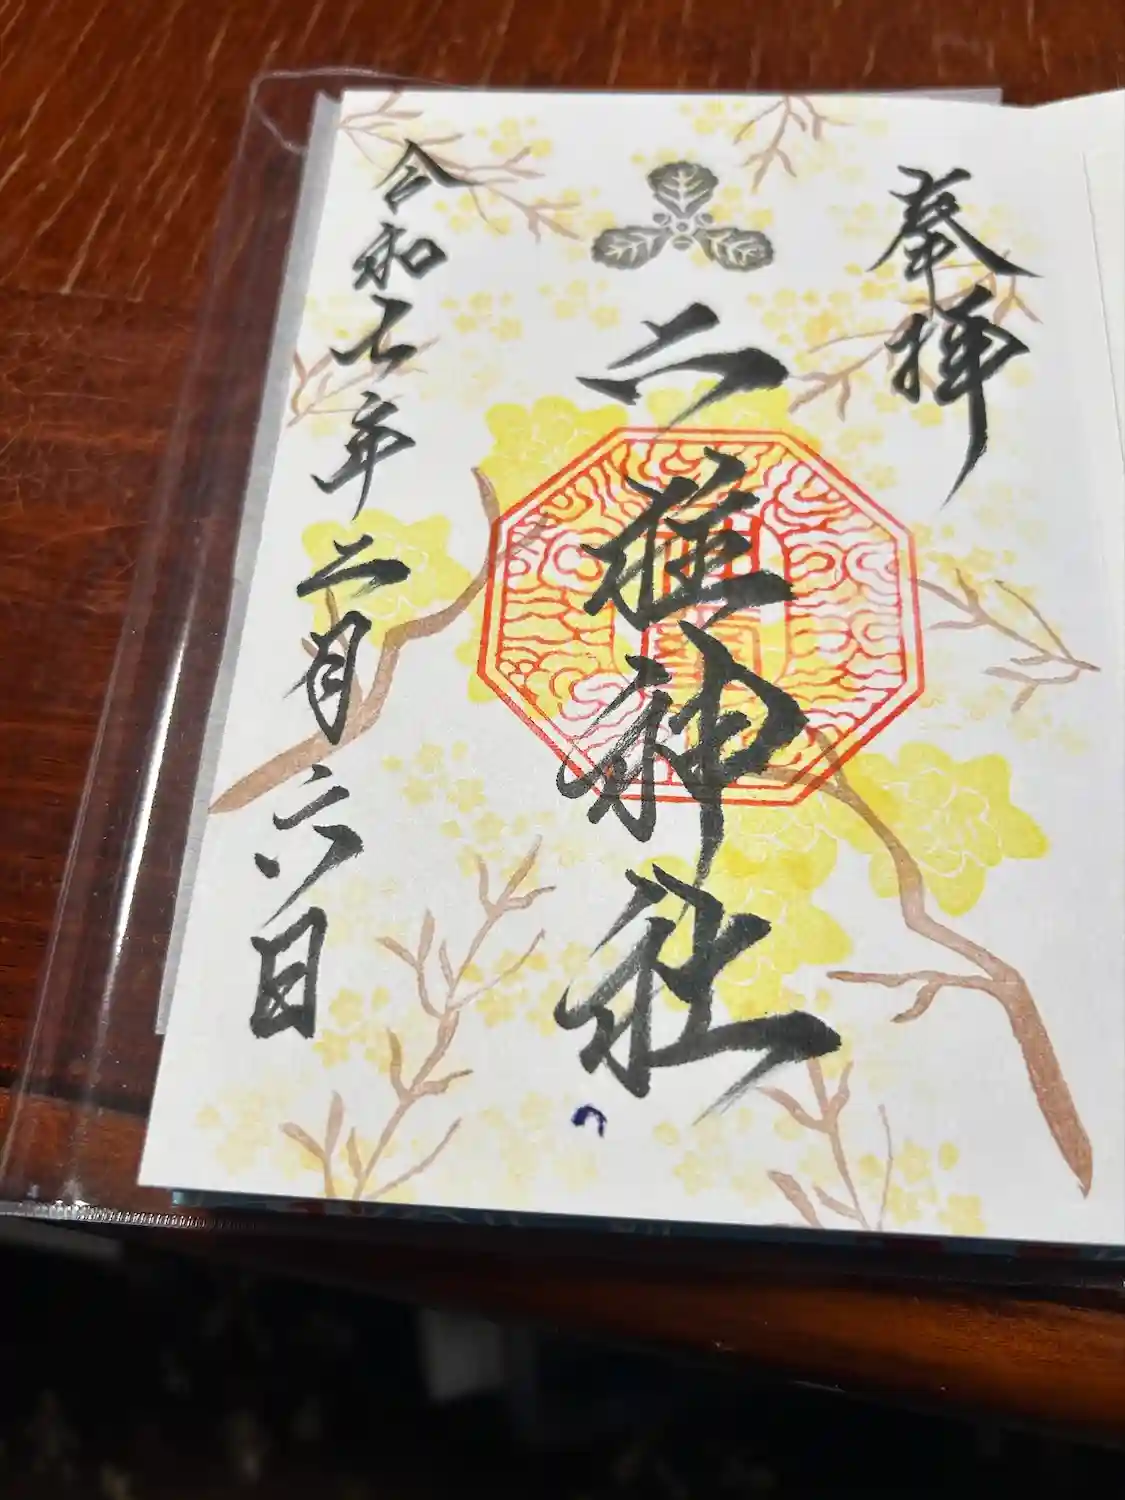 奉拝
二柱神社
令和七年二月六日